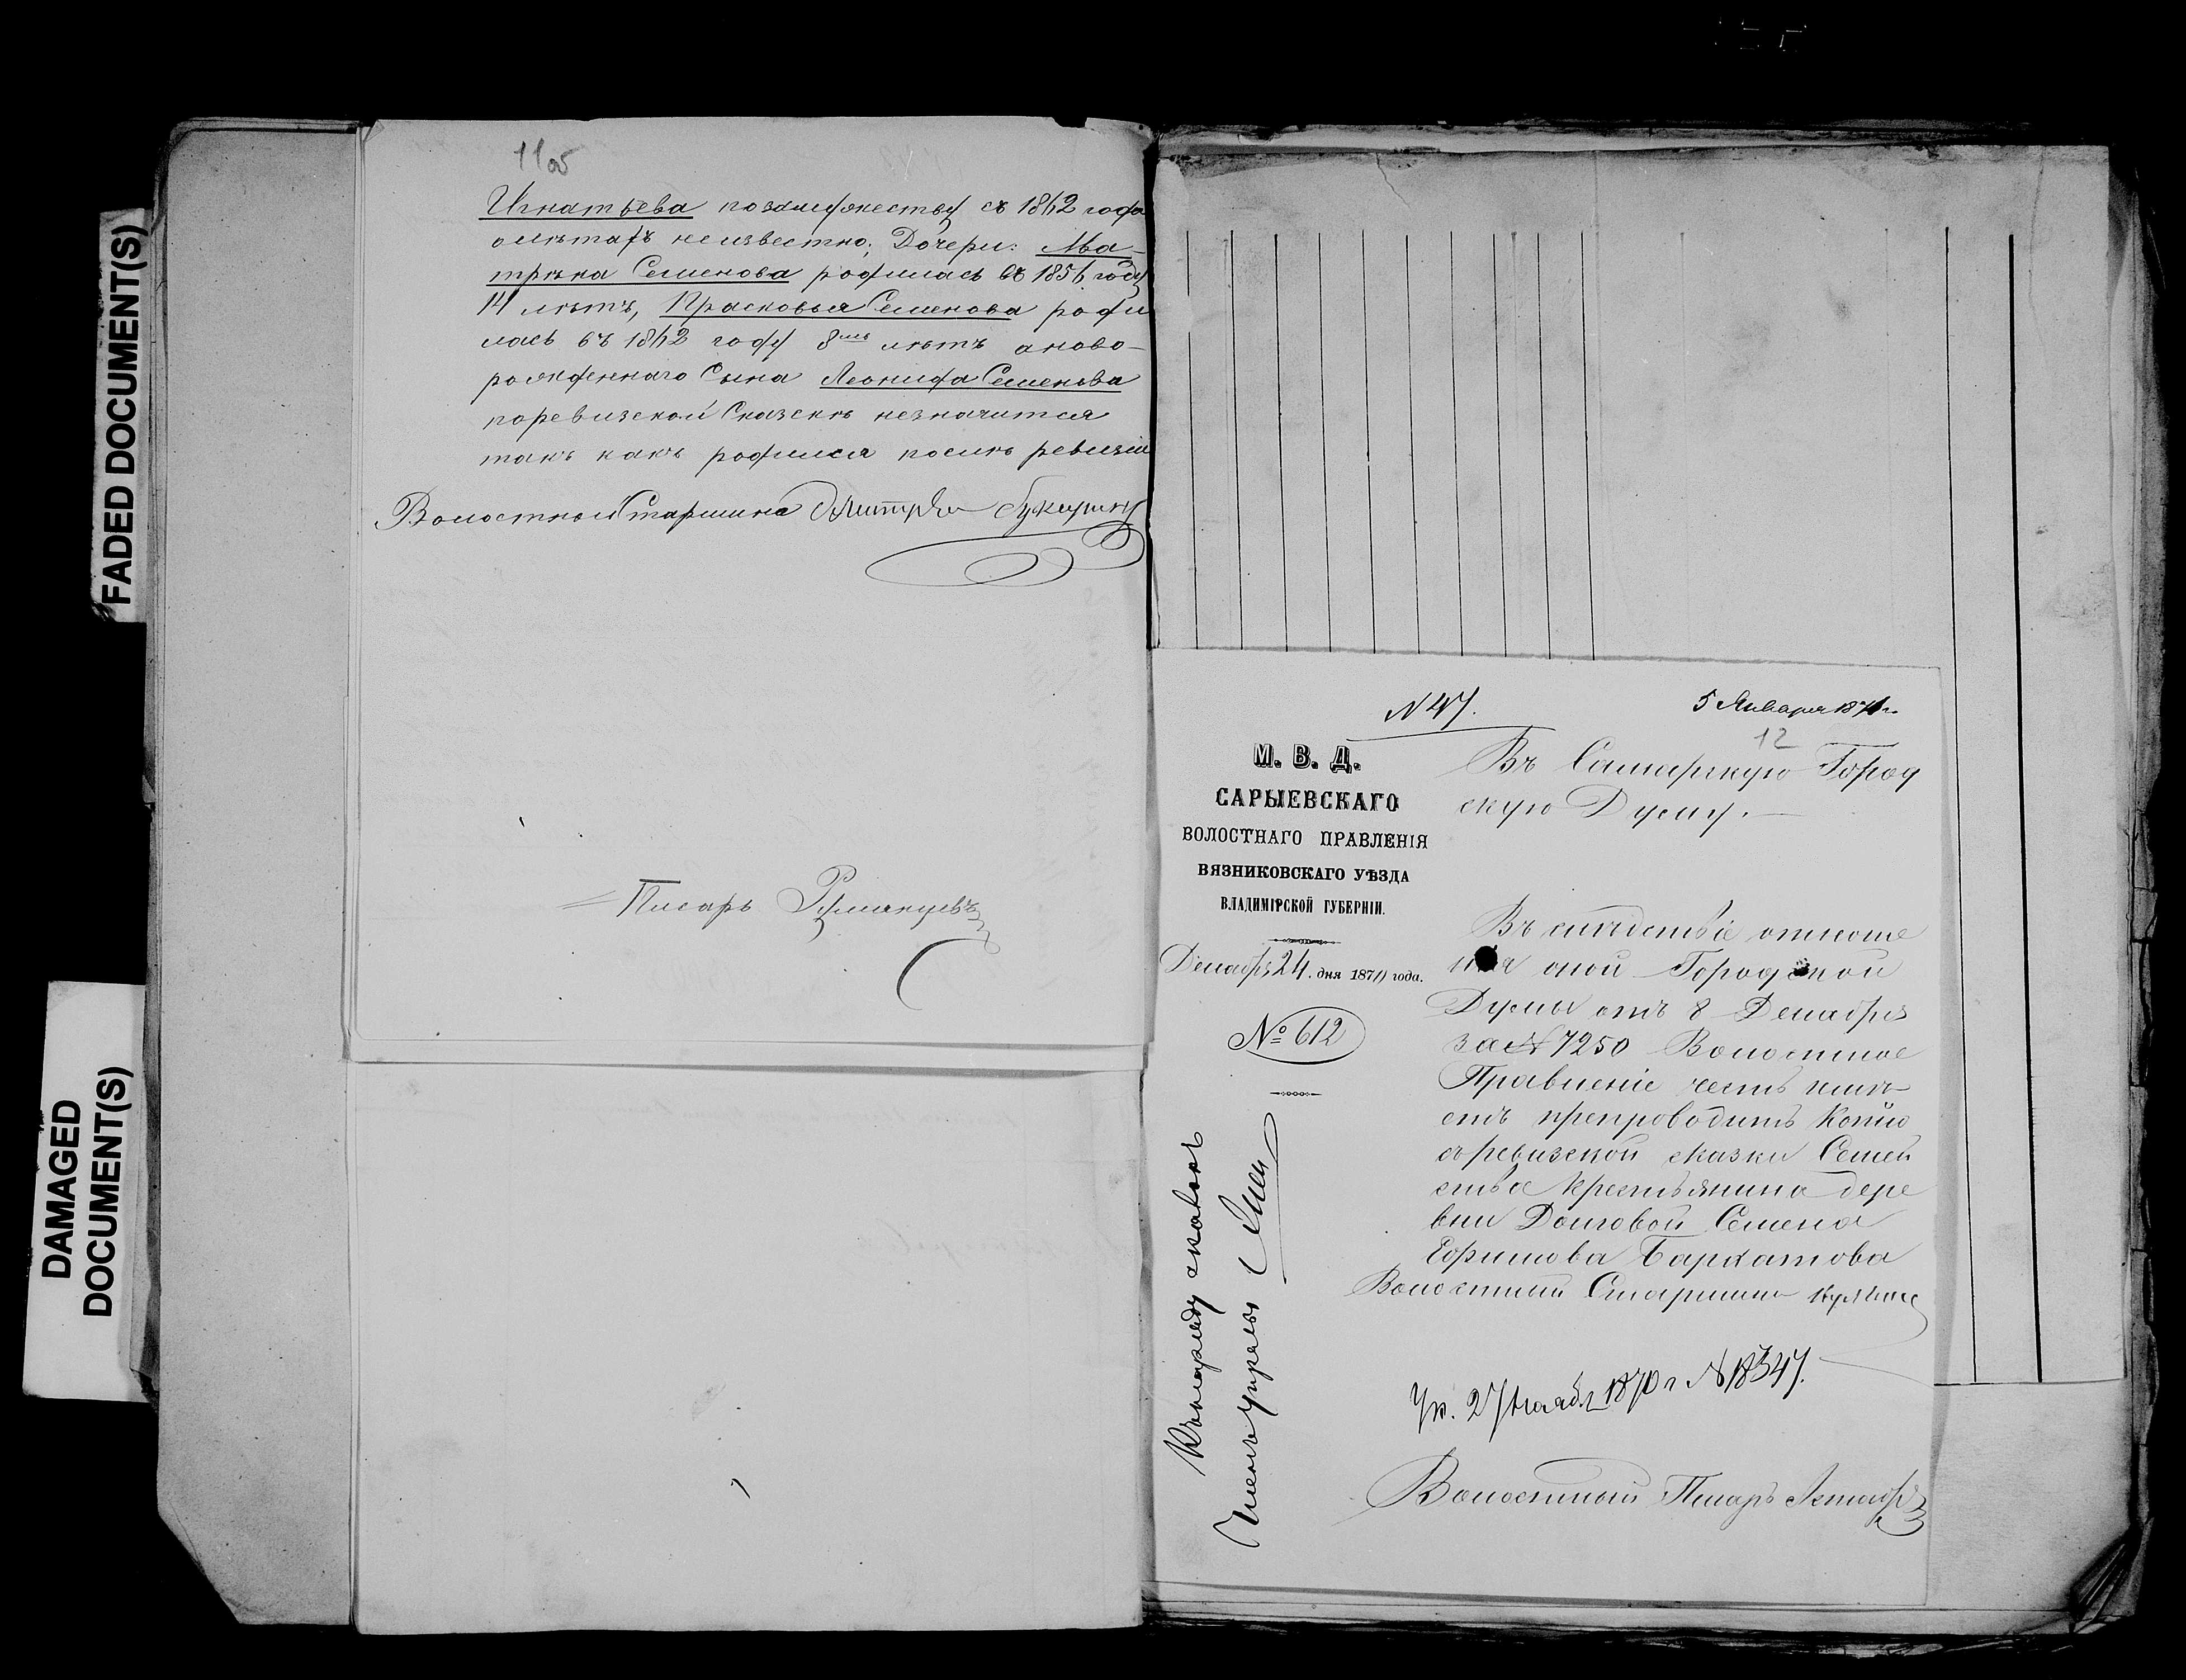 FADED DOCUMENT(S)
DAMAGED
DOCUMENT(S)
11об
Игнатьева позамужеству съ 1862 года
олѣтахъ неизвестно; Дочери: Ма-
трѣна Семенова родилась въ 1856 году
14 лѣтъ, Прасковья Семенова роди
лась въ 1862 году 8мь лѣтъ аново-
рожденнаго Сына Леонида Семенова
поревизской Сказскѣ незначится
такъ какъ родился послѣ ревизіи
Волостной Старшина Дмитрій
Писарь Румянцевъ
N 47.
5 Января 1871 г.
12
М. В. Д.
САРЫЕВСКАГО
ВОЛОСТНАГО ПРАВЛЕНІЯ
ВЯЗНИКОВСКАГО УѢЗДА
ВЛАДИМІРСКОЙ ГУБЕРНІИ.
Декабря 24. дня 1870 года.
№ 612
Въ Самарскую Город
скую Думу.
Въ слѣдствіе отноше
нія оной Городской
Думы отъ 8 Декабря
за N 7250 Волостное
Правленіе честь имѣ-
етъ препроводить Копію
съ ревизской сказки Семей
ства Крестьянина дере
вни Долговой Семена
Ефимова Бархатова
Волостный Старшина
27 Декабр 1870 г N 18347.
Волостный Писарь